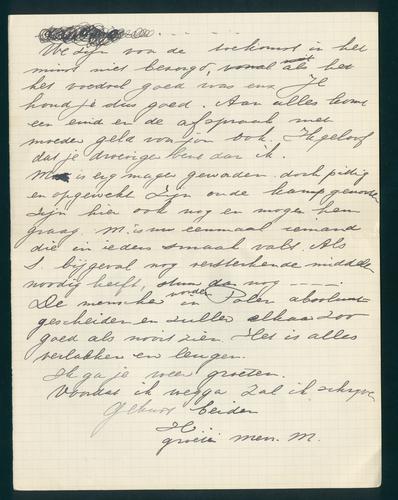 We zijn voor de toekomst in het
minst niet bezorgd, vooral als het
het voedsel goed was enz. Je
houd je dus goed. Aan alles komt
een eind en de afspraak met
moeder geld voor jou ook. Ik geloof
dat je droeviger bent dan ik.
M. is erg mager geworden doch pittig
en opgewekt. Zijn oude kampgenooten
zijn hier ook nog en mogen hem
graag. M. is nu eenmaal iemand
die in ieders smaak valt. Als
S. bijgeval nog versterkende middelen
noodig heeft, stuur dan nog
De menschen worden in Polen absoluut
gescheiden en zullen elkaar zoo
goed als nooit zien. Het is alles
verlakken en leugen.
Ik ga je weer groeten.
Voordat ik wegga zal ik schrijven
beiden
H.
groeten M.